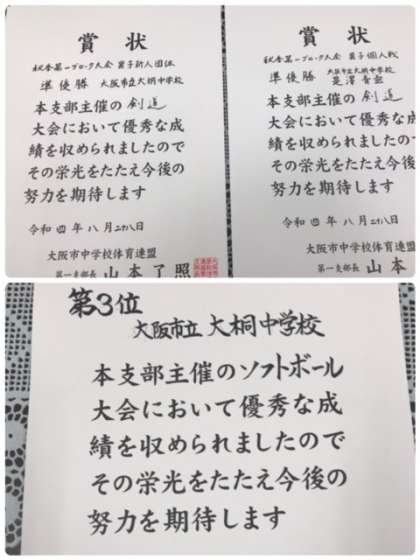 賞状
秋季第一ブロック大会 男子新人団体
準優勝 大阪市立大桐中学校
本支部主催の剣道
大会において優秀な成
績を収められましたので
その栄光をたたえ今後の
努力を期待します
令和四年八月二十八日
大阪市中学校体育連盟
第一支部長 山本了照
賞状
秋季第一ブロック大会 男子個人戦
準優勝 大阪市立大桐中学校
本支部主催の剣道
大会において優秀な成
績を収められましたの
その栄光をたたえ今後
努力を期待します
令和四年八月二十八日
大阪市中学校体育
第一支部長 山本
第3位
大阪市立大桐中学校
本支部主催のソフトボール
大会において優秀な成
績を収められましたので
その栄光をたたえ今後の
努力を期待します